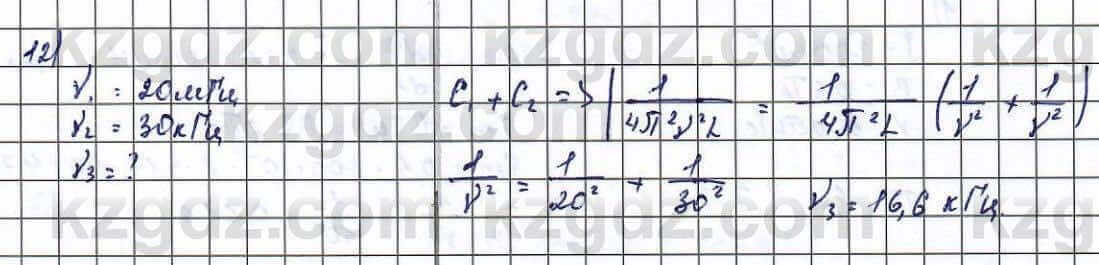 12)
ν₁ = 20мГц
ν₂ = 30кГц
ν₃ = ?
C₁ + C₂ => | 1/(4π²ν²L) = 1/(4π²L) (1/ν² + 1/ν²)
1/ν² = 1/20² + 1/30²
ν₃ = 16,6 кГц.
kzgdz.com kzgdz.com
kzgdz.com kzgdz.com
kzgdz.com kzgdz.com